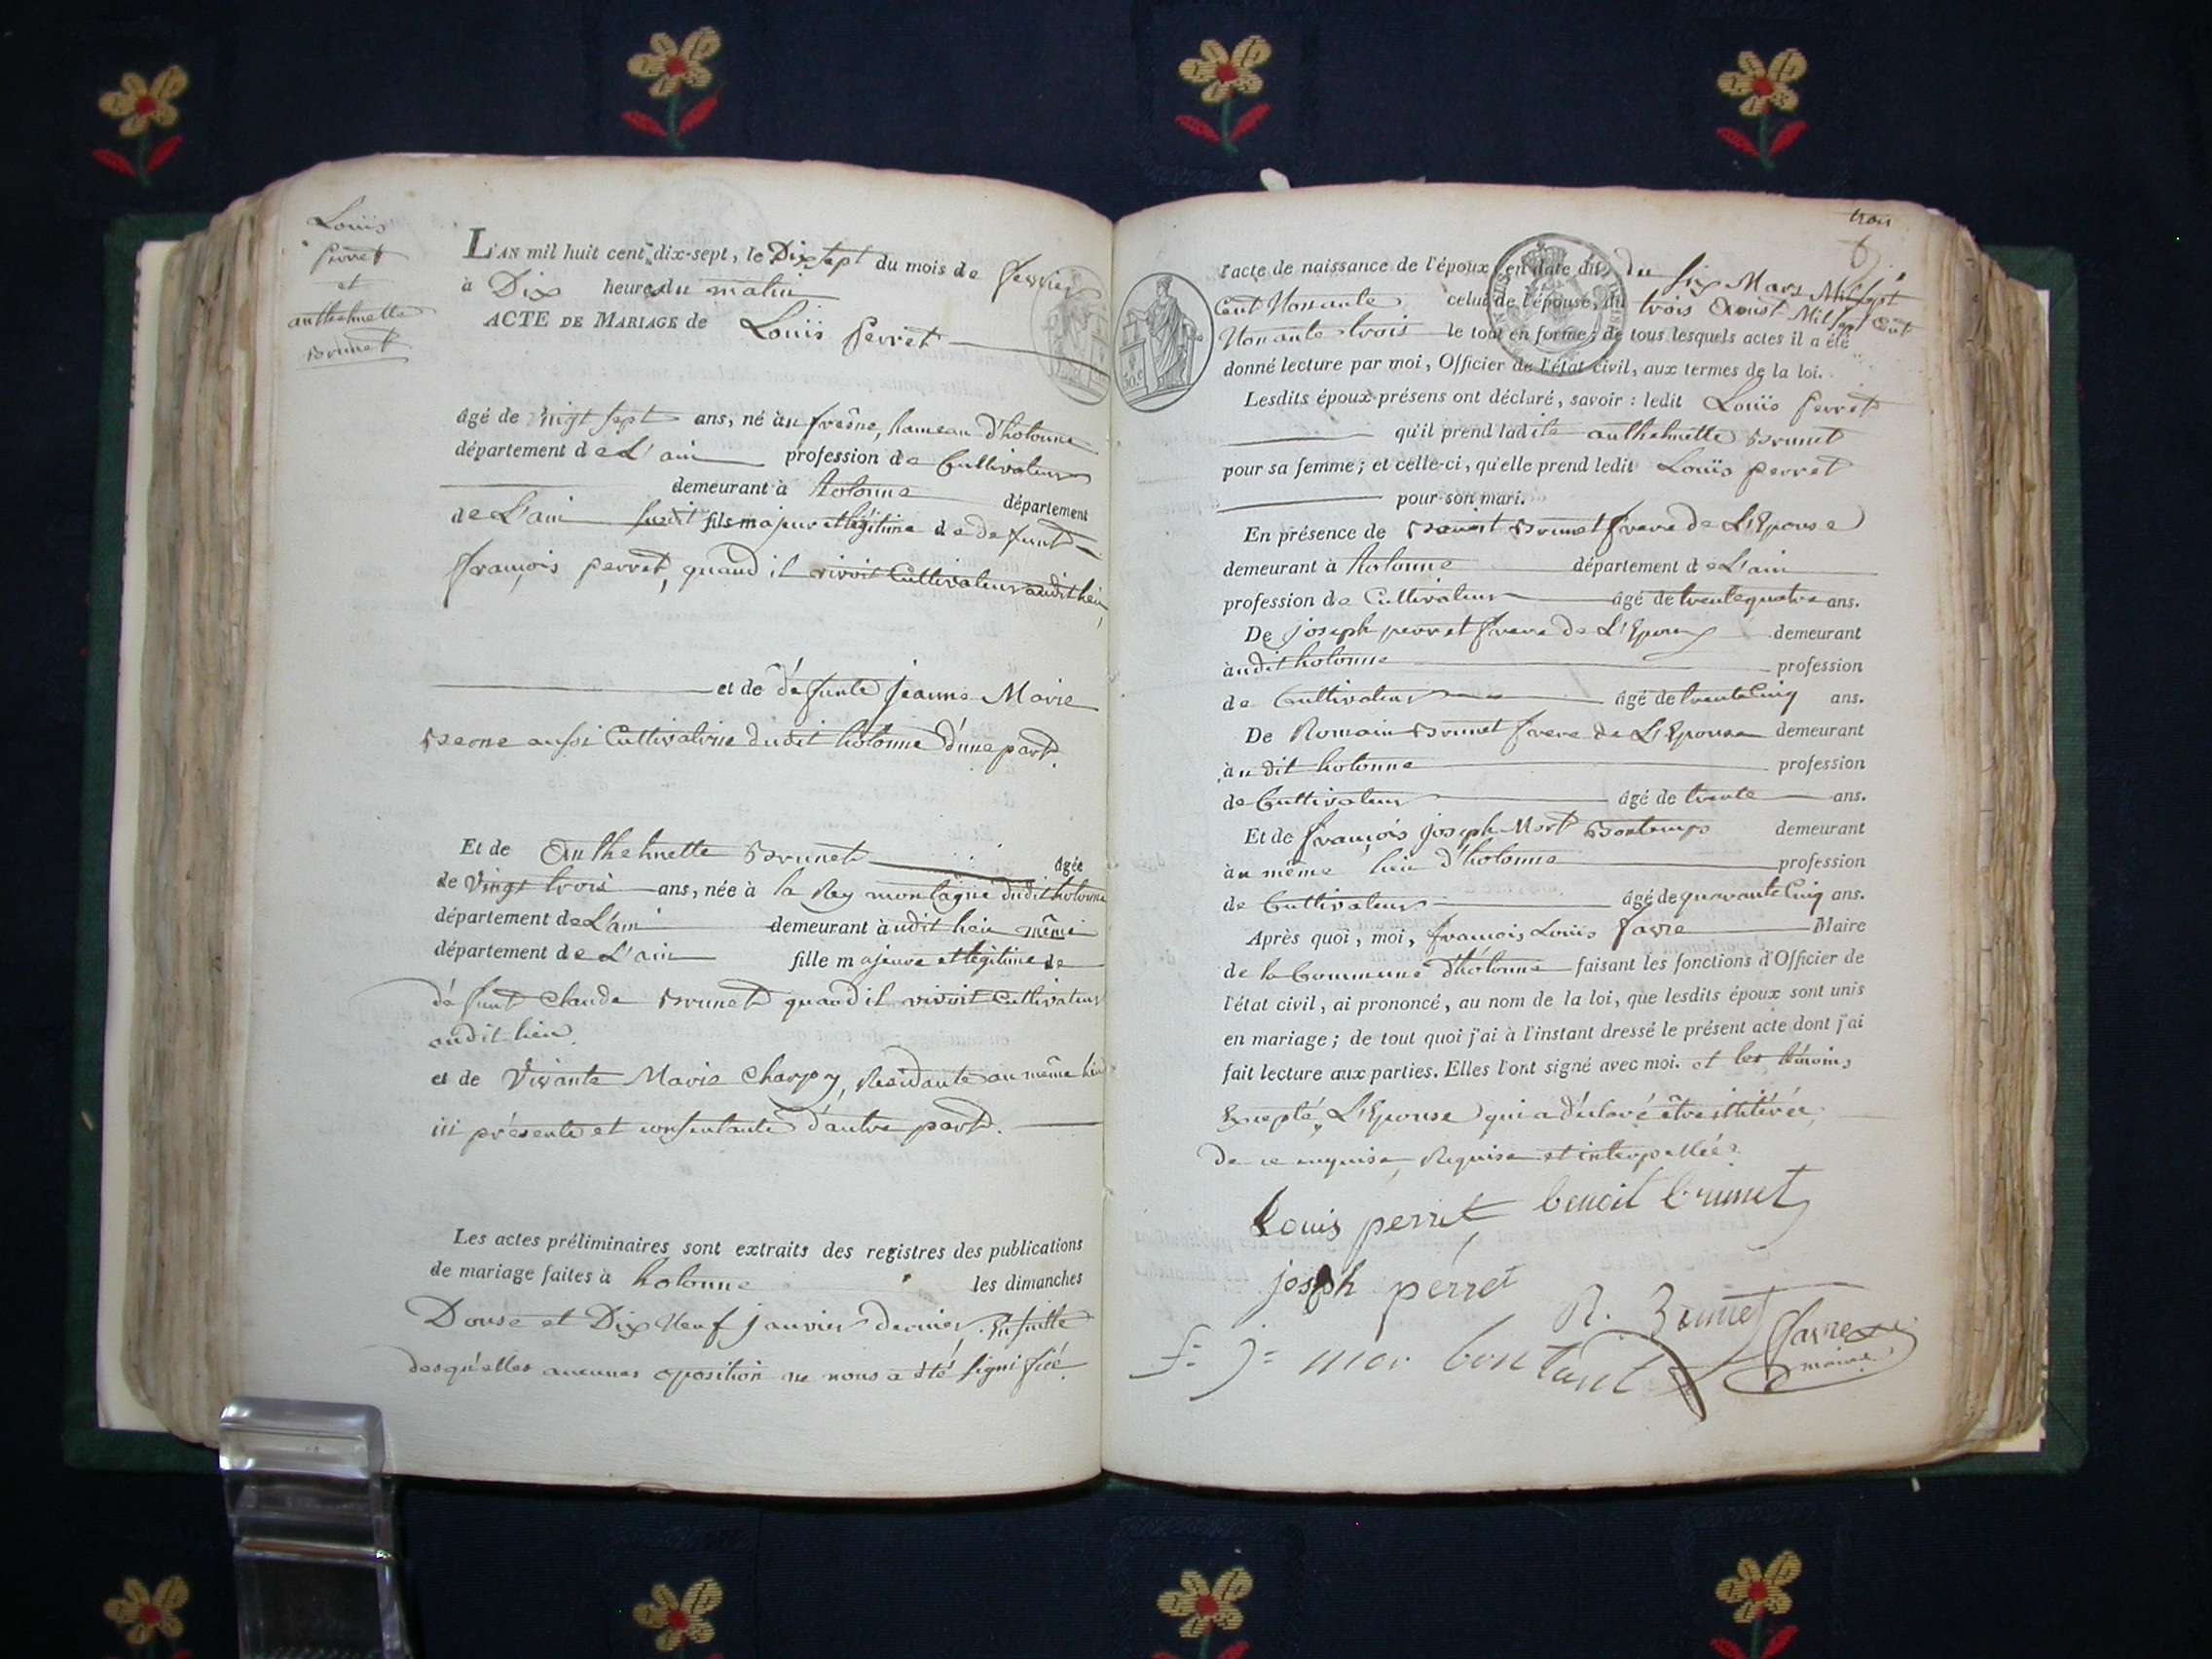 Louis
Perret
et
anthelmette
Brunet
L'AN mil huit cent dix-sept, le Dix sept du mois de fevrier
à Dix heures du matin
ACTE DE MARIAGE de Louis Perret
âgé de vingt sept ans, né au fresne, hameau d'hotonne
département de L'ain profession de Cultivateur
demeurant à hotonne département
de L'ain susdit fils majeur et légitime de defunt
françois perret, quand il vivoit Cultivateur audit lieu,
et de défunte jeanne Marie
aussi Cultivatrice dudit hotonne d'une part.
Et de Anthelmette Brunet âgée
de vingt trois ans, née à la Rey montagne dudit hotonne
département de L'ain demeurant audit lieu même
département de L'ain fille majeure et légitime de
défunt Claude Brunet quand il vivoit Cultivateur
audit lieu.
et de Vivante Marie Charpy, Residante au même lieu
ici présente et consentante d'autre part.
Les actes préliminaires sont extraits des registres des publications
de mariage faites à hotonne les dimanches
Douse et Dix Neuf janvier dernier. Ensuitte
desqu'elles aucunes oposition ne nous a été signifiée.
trois
6
l'acte de naissance de l'époux, en date du du six Mars Mil sept
Cent Nonante celui de l'épouse, du trois Aoust Mil sept Cent
Nonante trois le tout en forme; de tous lesquels actes il a été
donné lecture par moi, Officier de l'état civil, aux termes de la loi.
Lesdits époux présens ont déclaré, savoir : ledit Louis Perret
qu'il prend ladite anthelmette Brunet
pour sa femme; et celle-ci, qu'elle prend ledit Louis perret
pour son mari.
En présence de Benoit Brunet frere de L'Epouse
demeurant à hotonne département de L'ain
profession de Cultivateur âgé de trente quatre ans.
De joseph perret frere de L'Epoux demeurant
audit hotonne profession
de Cultivateur âgé de trente Cinq ans.
De Romain Brunet frere de L'Epouse demeurant
audit hotonne profession
de Cultivateur âgé de trente ans.
Et de françois joseph Mort Bontemps demeurant
au même lieu d'hotonne profession
de Cultivateur âgé de quarante Cinq ans.
Après quoi, moi, françois Louis favre Maire
de la Commune d'hotonne faisant les fonctions d'Officier de
l'état civil, ai prononcé, au nom de la loi, que lesdits époux sont unis
en mariage; de tout quoi j'ai à l'instant dressé le présent acte dont j'ai
fait lecture aux parties. Elles l'ont signé avec moi. et les témoins
Excepté L'Epouse qui a déclaré être illitérée
de ce enquise, Requise et interpellée.
Louis perret benoit brunet
joseph perret
R. Brunet favre
f: j= mor bontant maire